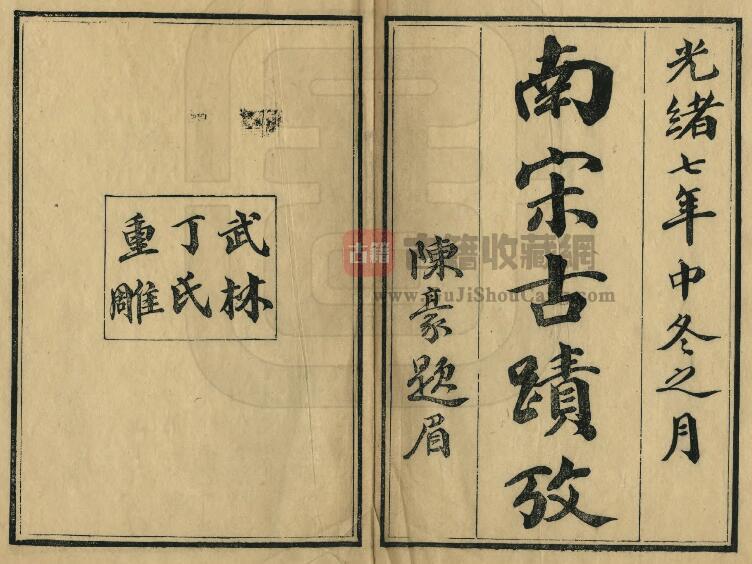 光緒七年中冬之月
南宋古蹟攷
陳豪題眉
武林
丁氏
重雕
古籍
古籍收藏網
www.GuJiShouCang.com